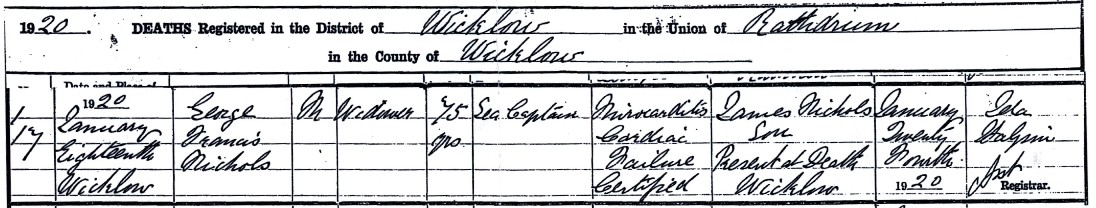 1920. DEATHS Registered in the District of Wicklow in the Union of Rathdrum
in the County of Wicklow
Date and Place of
1920
17
January
Eighteenth
Wicklow
George
Francis
Nichols
M
Widower
75
yrs
Sea Captain
Mirocarditis
Cardiac
Failure
Certified
James Nichols
Son
Present at Death
Wicklow
January
Twenty
Fourth
1920
Ida
Halpin
Registrar.